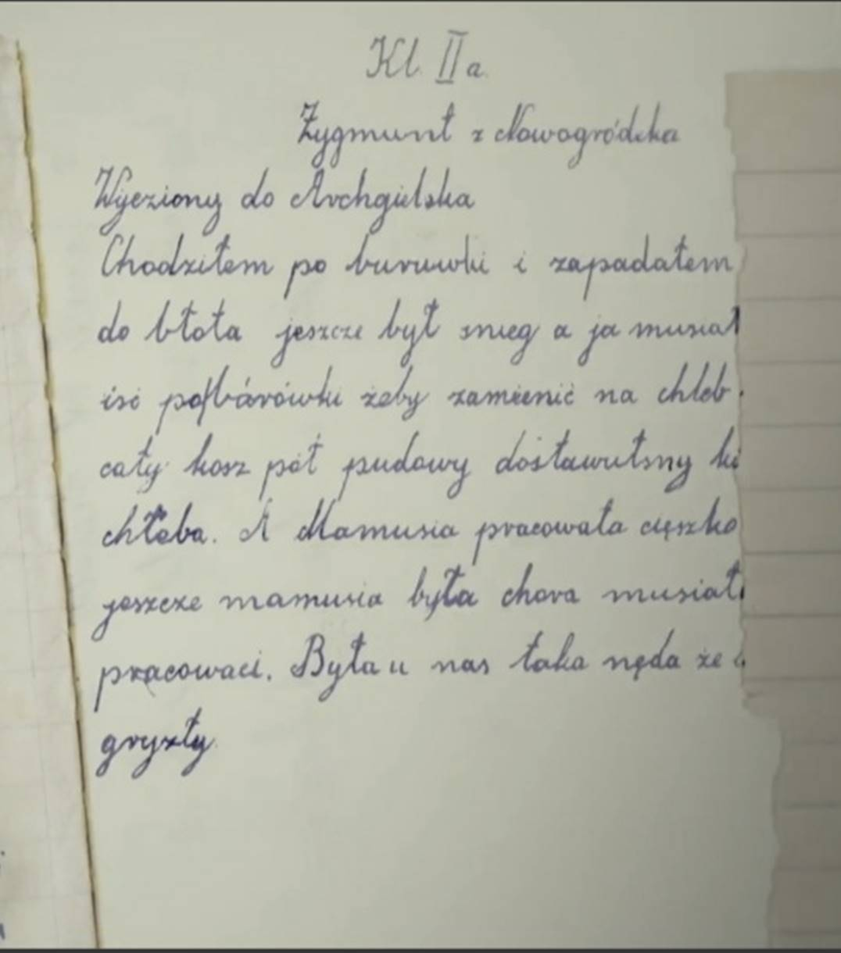 Kl. II a
Zygmunt z Nowogródzka
Wyeziony do Archgielska
Chodziłem po buruwki i zapadałem
do błota jeszcze był snieg a ja musiał
isć po bárówki żeby zamienić na chleb.
cały kosz pół pudowy dostawulismy
chłeba. A Mamusia pracowała cięszko
jeszcze mamusia była chora musiał
pracowaci. Była u nas taka nęda że
gryzły